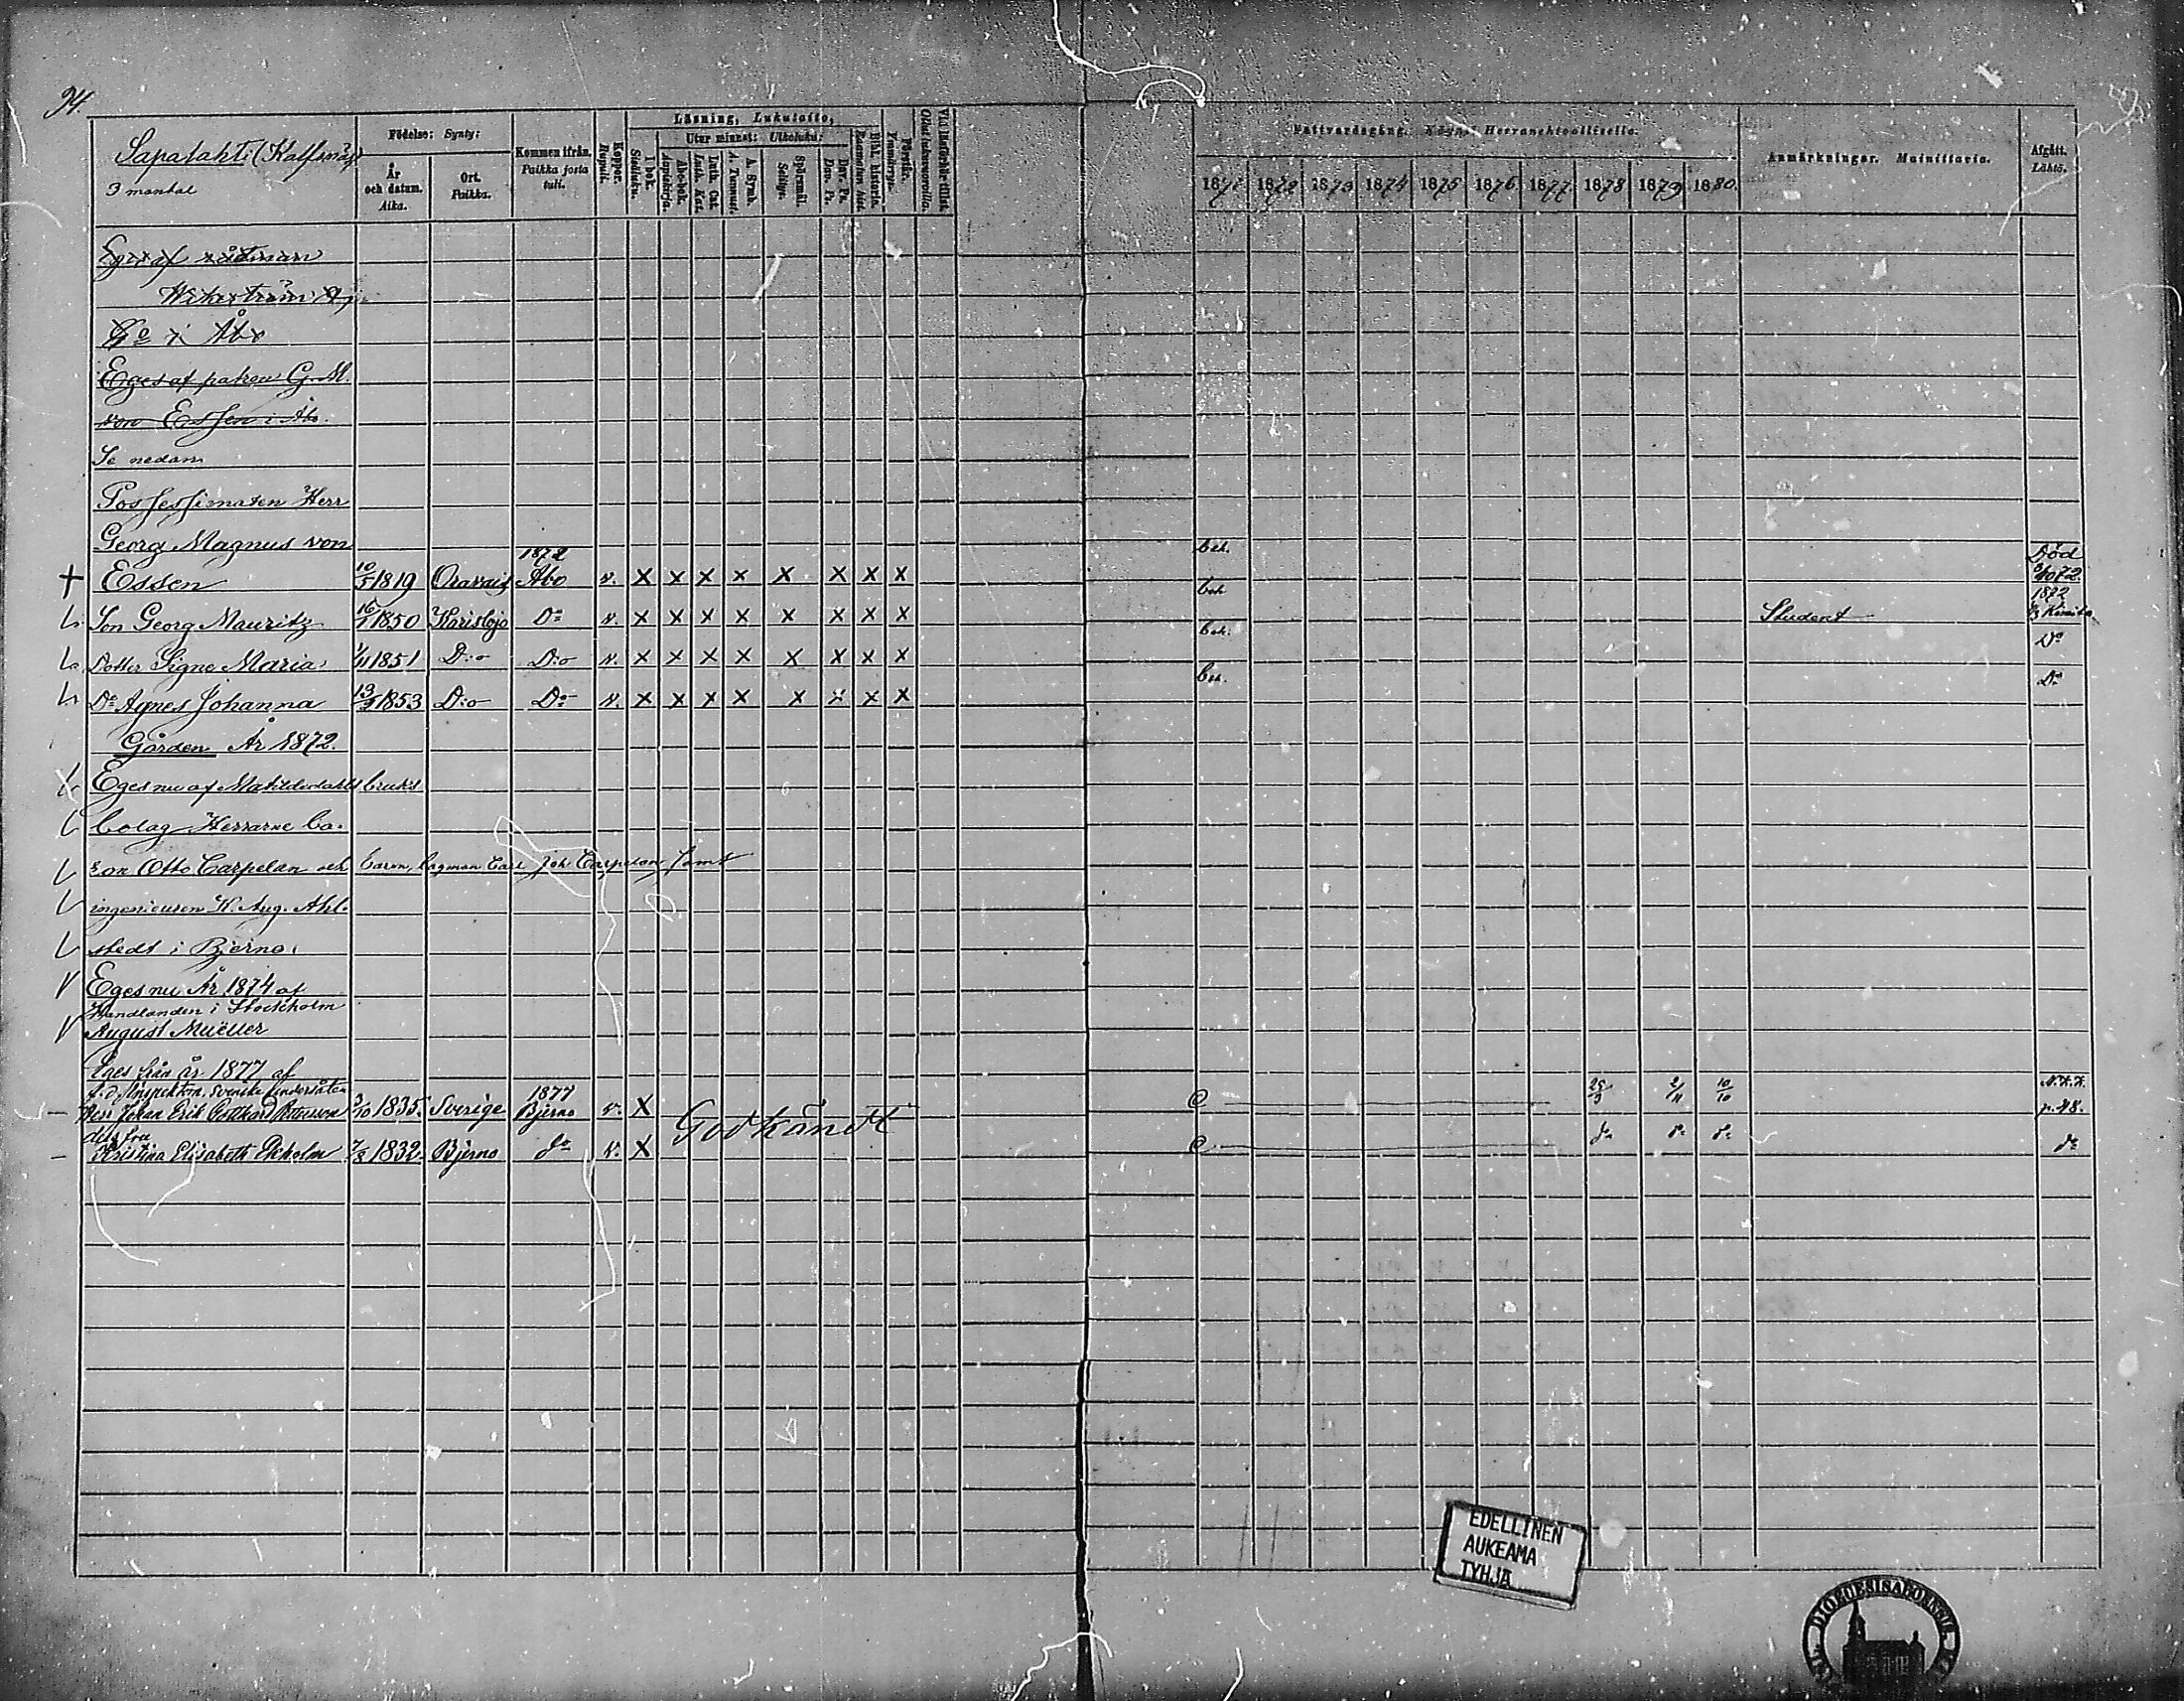 94.
Sapalahti (Kalfsnäs)
3 mantal
Födelse: Synty:
År och datum. Aika.
Ort. Paikka.
Kommen ifrån. Paikka josta tuli.
Koppor. Rupuli.
Läsning, Lukutaito,
I bok. Sisäluku.
Utur minnet: Ulkoluku:
Abc-bok. Aapiskirja.
Luth. Cat. Luth. Kat.
A. Symb. A. Tunnust.
Spörsmål. Selitys.
Dav. Ps. Dav. Ps.
Bibl. historia. Raamatun hist.
Förstår. Ymmärrys.
Vid läsförhör tillst. Ollut lukuvuoroilla.
Nattvardsgång. Käynt Herranehtoollisella.
1871 1872 1873 1874 1875 1876 1877 1878 1879 1880.
Anmärkningar. Mainittavia.
Afgått. Lähtö.
Eges af rådman
Wikström
i Åbo
Eges af G. M.
von Essen i Åbo.
Se nedan
Possessionaten Herr
Georg Magnus von
Essen 10/5 1819 Oravais 1872 Åbo v. x x x x x x x x beh. Död 3/10 72.
Son Georg Mauritz 16/1 1850 Karislojo Do v. x x x x x x x x beh. Student 1872 Kimito
Dotter Signe Maria 1/11 1851 D:o D:o v. x x x x x x x x beh. Do
Do Agnes Johanna 13/9 1853 D:o Do v. x x x x x x x x beh. Do
Gården År 1872.
Eges nu af Matildedahls bruks
bolag Herrarne Ba-
ron Otto Carpelan och baron, lagman Carl Joh. Carpelan samt
ingenieuren K. Aug. Ahl-
stedt i Bjerno.
Eges nu År 1874 af
Handlanden i Stockholm
August Müller
Eges från år 1877 af
f.d. Inspektorn, Svenske undersåten
Herr Johan Erik Gotthard Pettersson 3/10 1835. Sverige 1877 Bjerno v. X Godkändt 25/3 2/11 10/10 N.K.K. p. 48.
dess fru
Kristina Elisabeth Ekholm 7/8 1832. Bjerno do v. X do do do do
EDELLINEN
AUKEAMA
TYHJÄ
DIOECESIS ABOENSIS